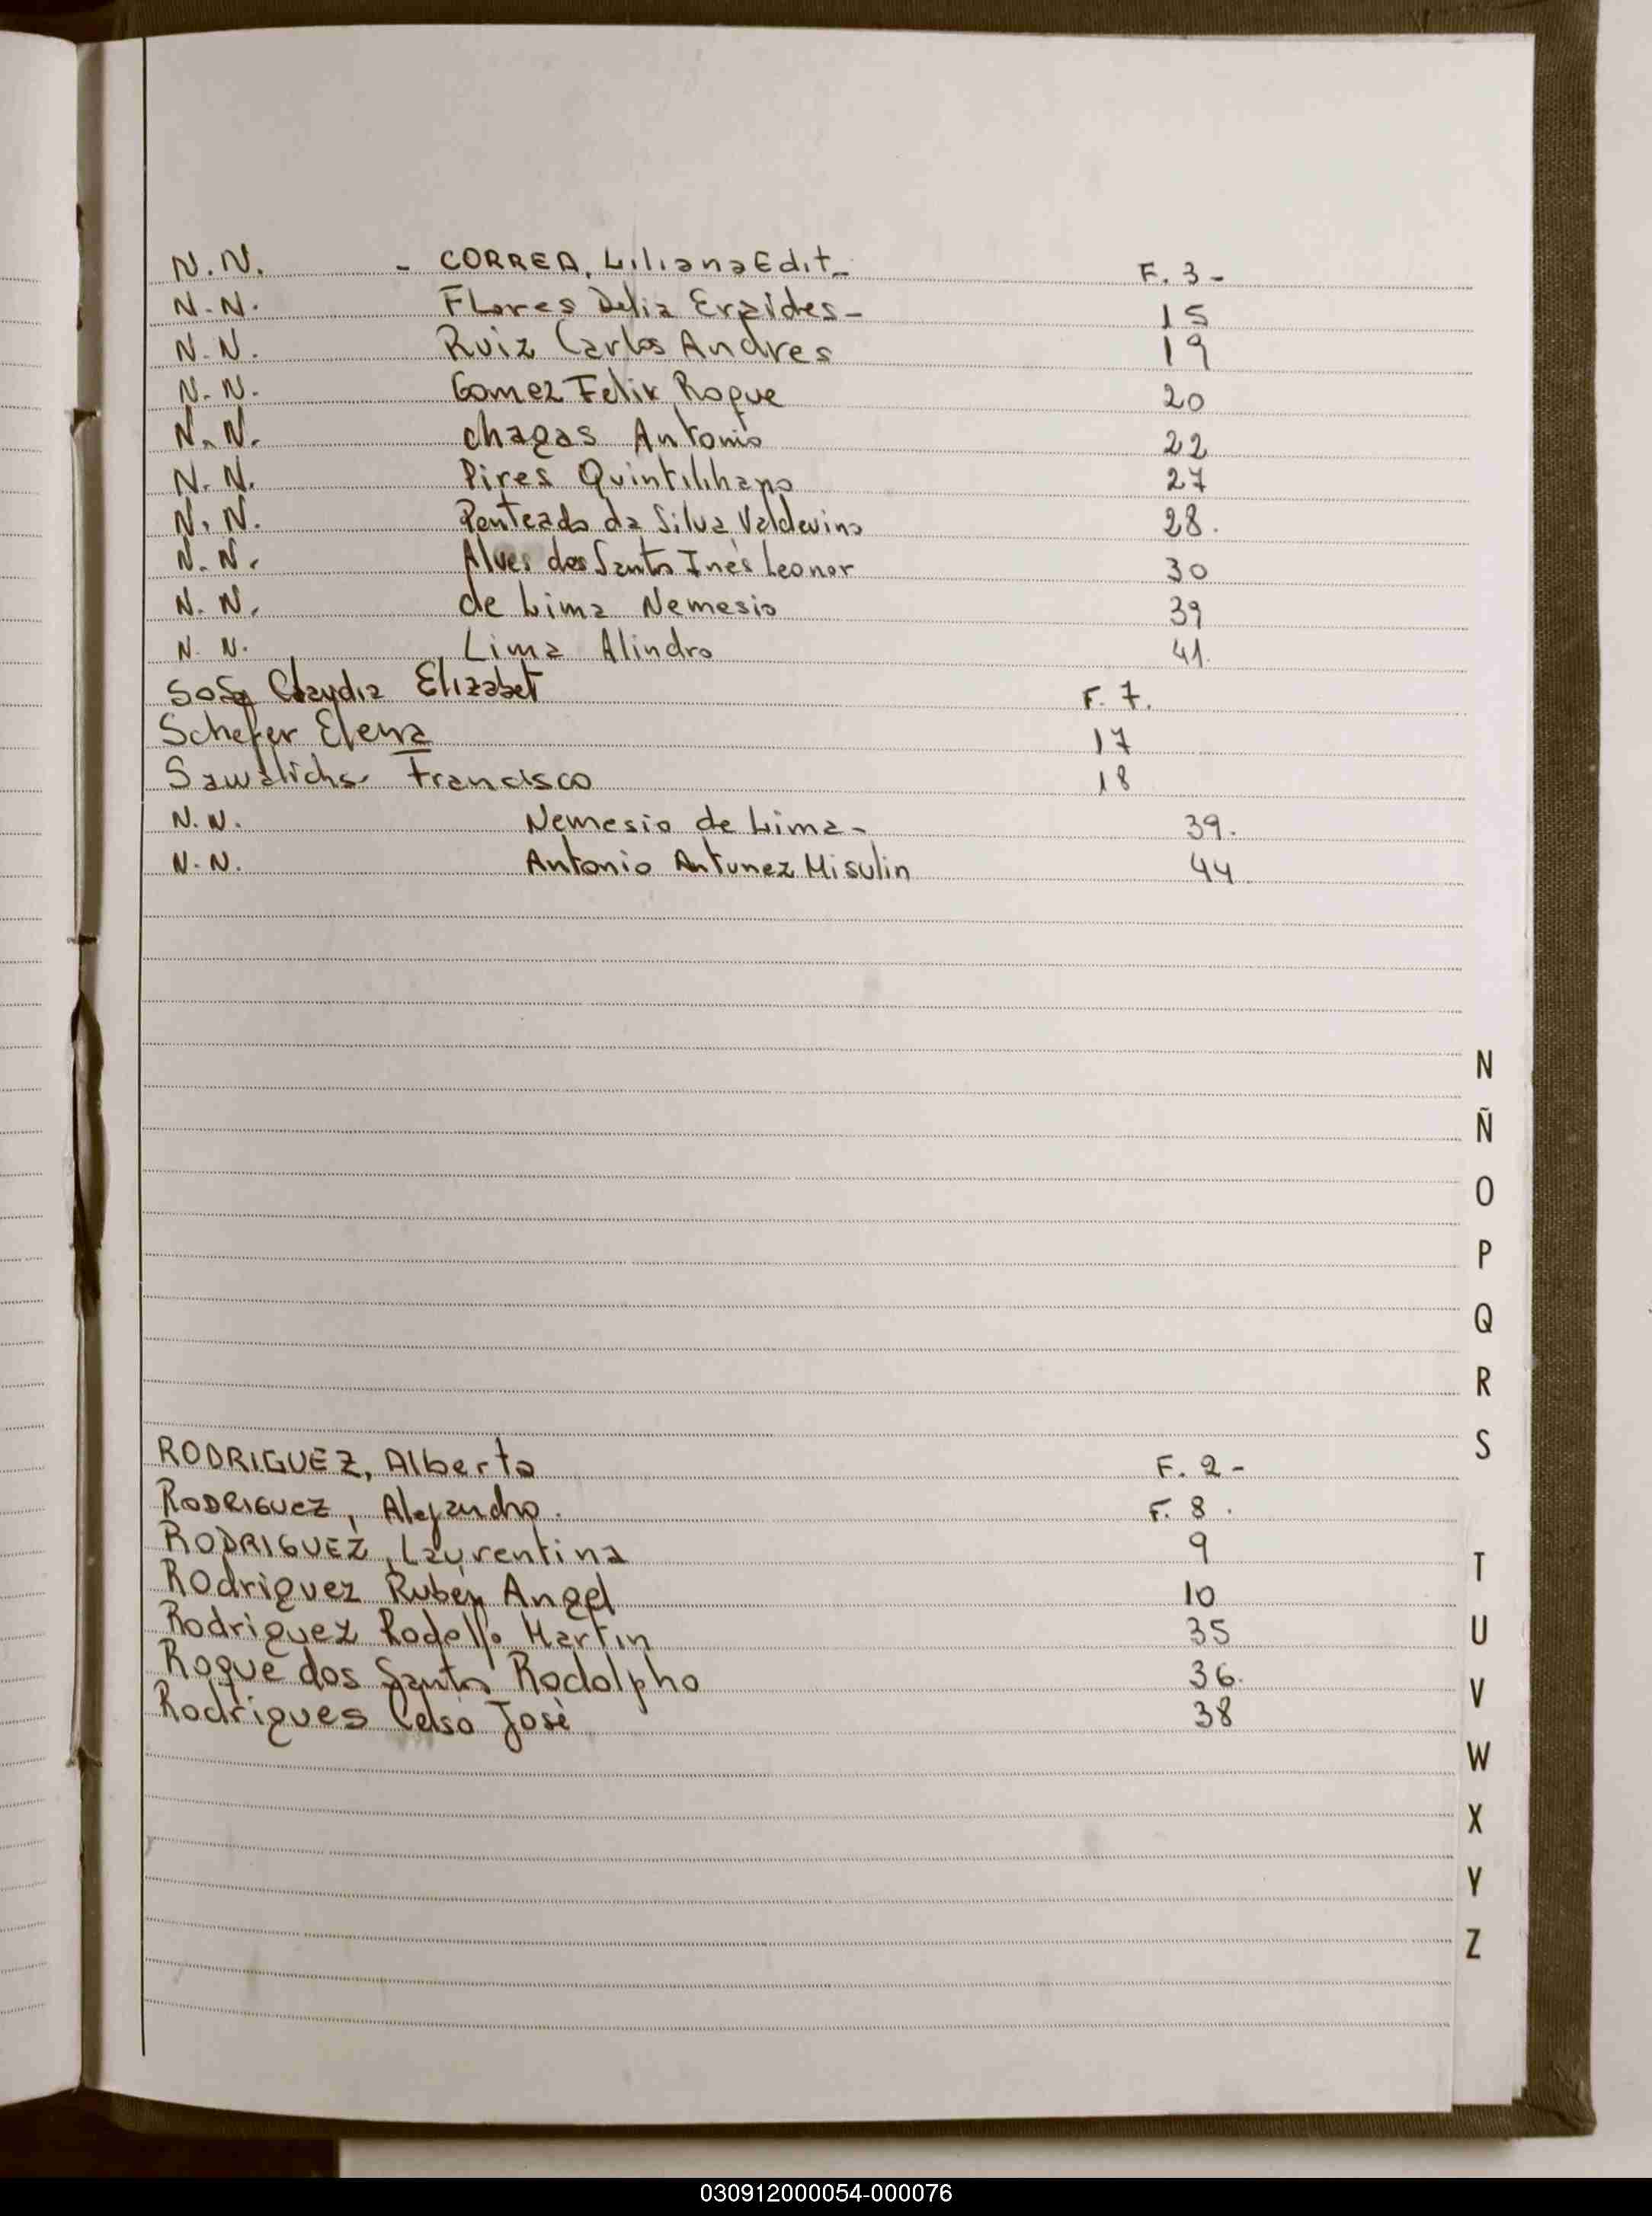 N.N. - CORREA, Liliana Edit- F. 3-
N.N. Flores Delia Eraides- 15
N.N. Ruiz Carlos Andres 19
N.N. Gomez Felix Roque 20
N.N. chagas Antonio 22
N.N. Pires Quintilihano 27
N.N. Penteado da Silva Valdevino 28.
N.N. Alves dos Santos Inés Leonor 30
N.N. de Lima Nemesio 39
N.N. Lima Alindro 41.
Sosa Claudia Elizabet F. 7.
Schefer Elena 17
Sawalichs Francisco 18
N.N. Nemesio de Lima- 39.
N.N. Antonio Antunez Misulin 44
N
Ñ
O
P
Q
R
S
RODRIGUEZ, Alberto F. 2-
RODRIGUEZ, Alejandro. F. 8.
RODRIGUEZ, Laurentina 9
T
Rodriguez Rubén Angel 10
Rodriguez Rodolfo Martin 35
U
Roque dos Santos Rodolpho 36.
V
Rodrigues Celso José 38
W
X
Y
Z
030912000054-000076